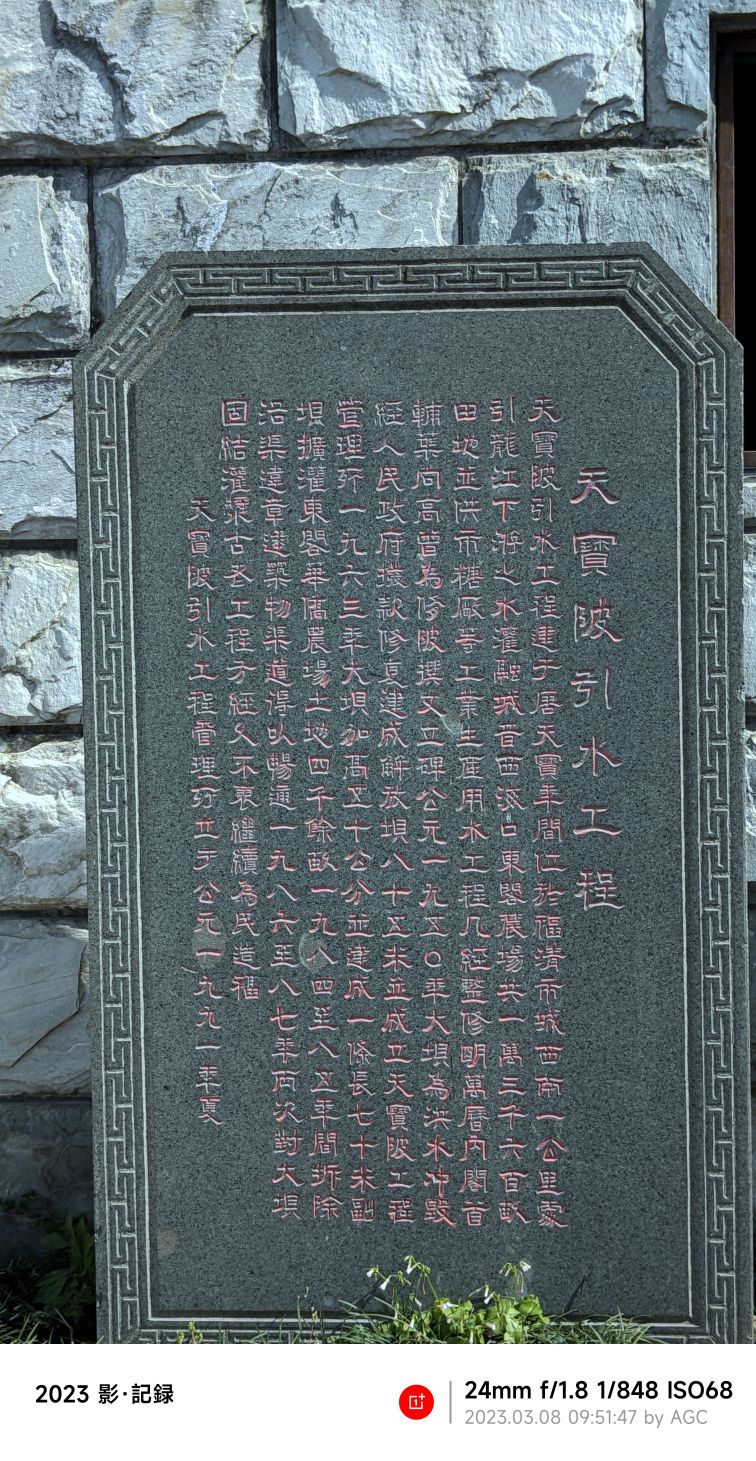 天寶陂引水工程
天寶陂引水工程建于唐天寶年間位於福清市城西南一公里處
引龍江下游之水灌融城音西海口東閣農場共一萬三千六百畝
田地並供市糖廠等工業生產用水工程几經整修明萬曆內閣首
輔葉向高曾為修陂撰文立碑公元一九五〇年大壩為洪水冲毀
經人民政府撥款修復建成解放壩八十五米並成立天寶陂工程
管理所一九六三年大壩加高五十公分並建成一條長七十米副
壩擴灌東閣華僑農場土地四千餘畝一九八四至八五年間拆除
沿渠違章建築物渠道得以暢通一九八六至八七年两次對大壩
固結灌漿古老工程才經久不衰繼續為民造福
天寶陂引水工程管理所立于公元一九九一年夏
2023 影·記録
24mm f/1.8 1/848 ISO68
2023.03.08 09:51:47 by AGC